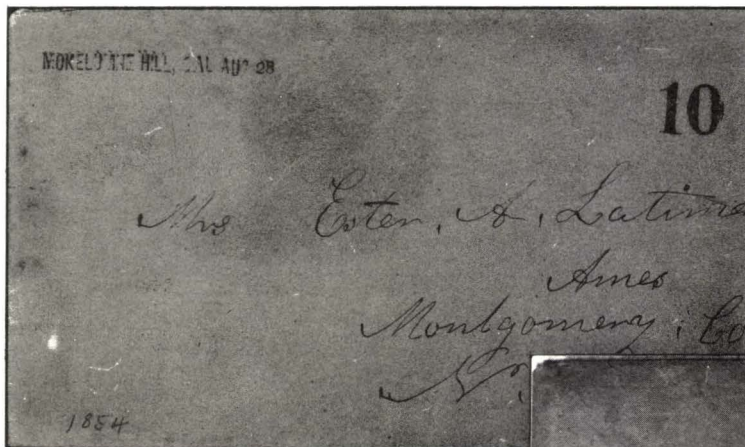 MOKELUMNE HILL, CAL AUG 28
10
Mrs Ester, A, Latime
Ames
Montgomery, Co
N.
1854